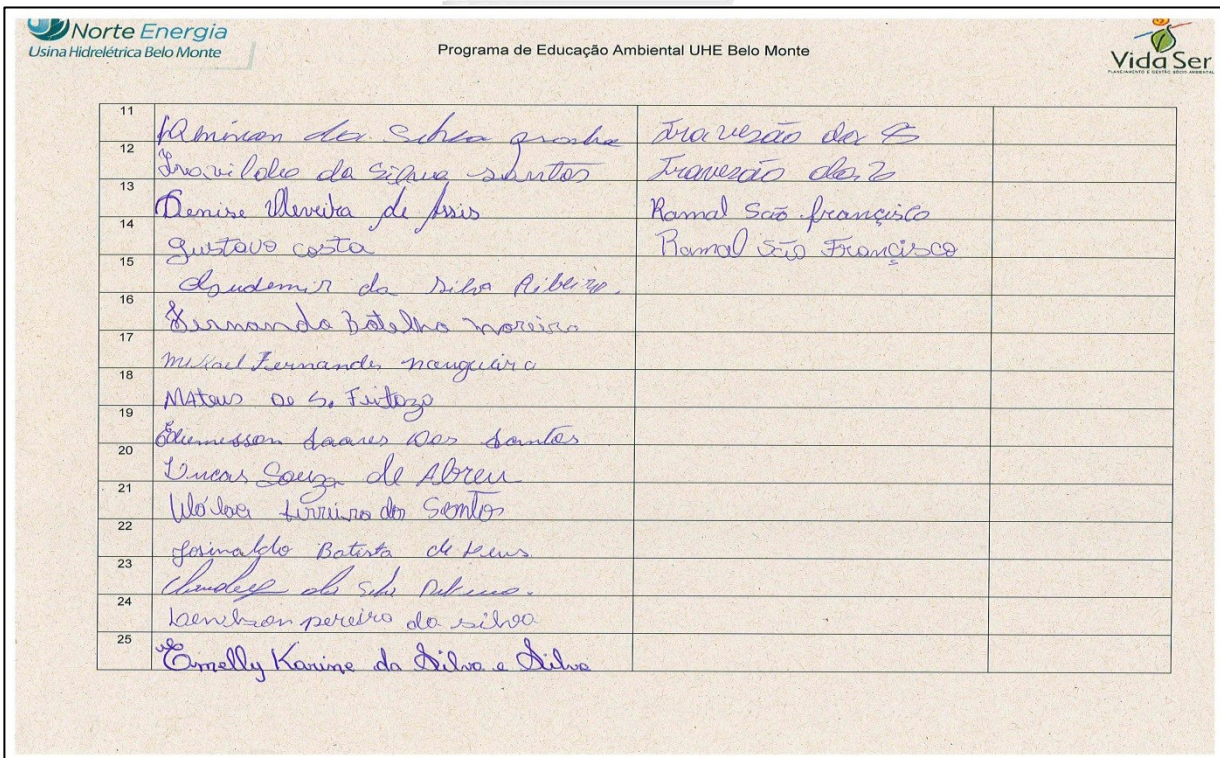 Norte Energia
Usina Hidrelétrica Belo Monte
Programa de Educação Ambiental UHE Belo Monte
Vida Ser
PLANEJAMENTO E GESTÃO SÓCIO AMBIENTAL
11 da Travesão da
12 da Silva santos Travesão da 2
13 Denise Oliveira de Assis Ramal São francisco
14 Gustavo costa Ramal São Francisco
15 da Silva Ribeiro.
16 Fernanda Botelho moreira
17 Fernandes
18 Mateus De S. Feitoza
19 Soares Dos Santos
20 Lucas Souza de Abreu
21 dos Santos
22 Josinaldo Batista de
23 da
24 pereira da silva
25 Emelly Karine da Silva e Silva